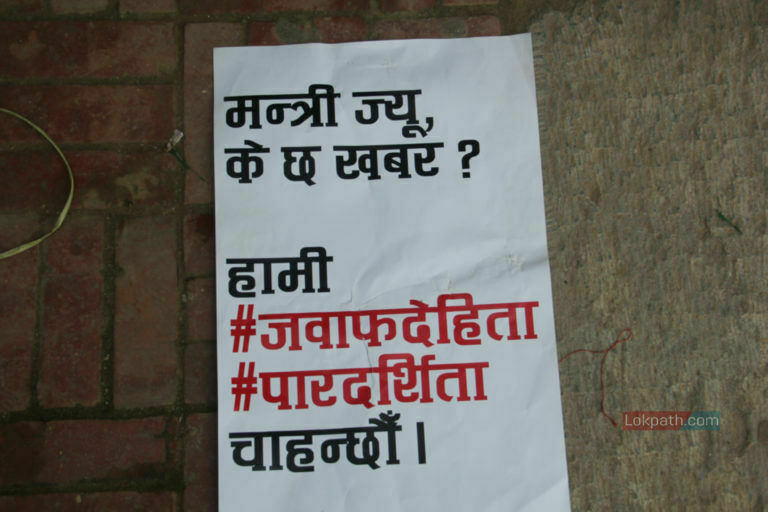 मन्त्री ज्यू,
के छ खबर ?
हामी
#जवाफदेहिता
#पारदर्शिता
चाहन्छौँ ।
Lokpath.com